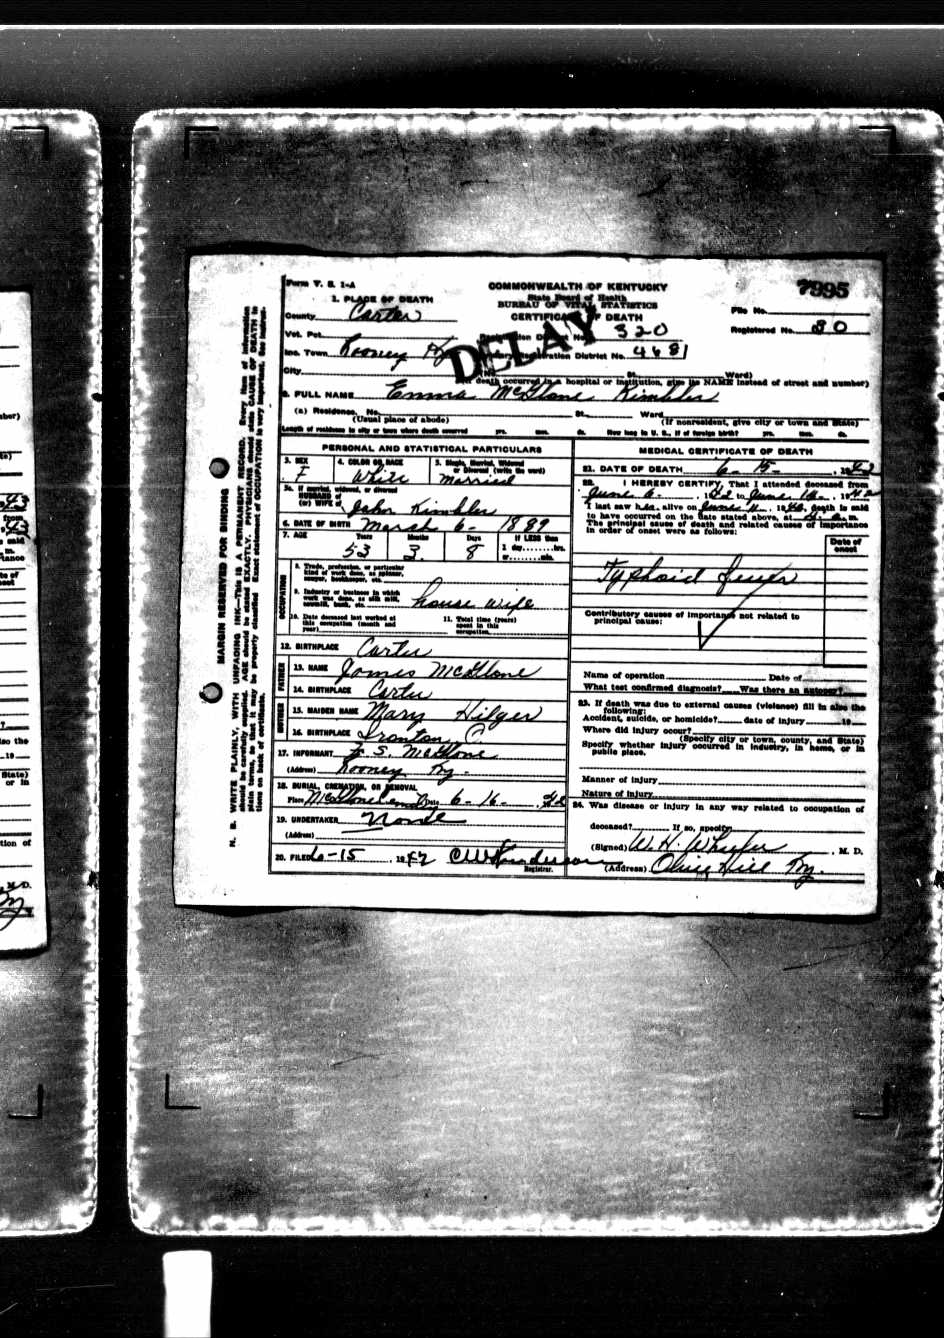 Form V. S. 1-A
COMMONWEALTH OF KENTUCKY
7995
State Board of Health
BUREAU OF VITAL STATISTICS
CERTIFICATE OF DEATH
DELAY
1. PLACE OF DEATH
County Carter
File No.
Vot. Pct. Registration District No. 320 Registered No. 30
Inc. Town Rooney Ky Primary Registration District No. 4681
City (No. St. Ward)
(If death occurred in a hospital or institution, give its NAME instead of street and number)
2. FULL NAME Emma McGlone Kimbler
(a) Residence, No. St. Ward
(Usual place of abode) (If nonresident, give city or town and State)
Length of residence in city or town where death occurred yrs. mos. ds. How long in U. S., if of foreign birth? yrs. mos. ds.
PERSONAL AND STATISTICAL PARTICULARS
3. SEX F 4. COLOR OR RACE White 5. Single, Married, Widowed or Divorced (write the word) Married
5a. If married, widowed, or divorced
HUSBAND of
(or) WIFE of John Kimbler
6. DATE OF BIRTH March 6 - 1889
7. AGE Years 53 Months 3 Days 8 If LESS than 1 day, hrs. or min.
OCCUPATION
8. Trade, profession, or particular kind of work done, as spinner, sawyer, bookkeeper, etc.
9. Industry or business in which work was done, as silk mill, sawmill, bank, etc. house wife
10. Date deceased last worked at this occupation (month and year)
11. Total time (years) spent in this occupation
12. BIRTHPLACE Carter
FATHER
13. NAME James McGlone
14. BIRTHPLACE Carter
MOTHER
15. MAIDEN NAME Mary Hilger
16. BIRTHPLACE Ironton O
17. INFORMANT S. McGlone
(Address) Rooney Ky.
18. BURIAL, CREMATION, OR REMOVAL
Place McGlone Cem Date 6-16- 42
19. UNDERTAKER None
(Address)
20. FILED 6-15, 1942
Registrar.
MEDICAL CERTIFICATE OF DEATH
21. DATE OF DEATH 6 - 15 - , 1942
22. I HEREBY CERTIFY, That I attended deceased from
June 6 - , 1942 to June 12 - , 1942
I last saw her alive on June 11, 1942, death is said
to have occurred on the date stated above, at m.
The principal cause of death and related causes of importance
in order of onset were as follows:
Date of onset
Typhoid fever
Contributory causes of importance not related to
principal cause:
Name of operation Date of
What test confirmed diagnosis? Was there an autopsy?
23. If death was due to external causes (violence) fill in also the
following:
Accident, suicide, or homicide? date of injury 19
Where did injury occur?
(Specify city or town, county, and State)
Specify whether injury occurred in industry, in home, or in
public place.
Manner of injury
Nature of injury
24. Was disease or injury in any way related to occupation of
deceased? If so, specify
(Signed) W. H. Wheeler, M. D.
(Address) Olive Hill Ky.
MARGIN RESERVED FOR BINDING
N. B. WRITE PLAINLY, WITH UNFADING INK—This IS A PERMANENT RECORD. Every item of information
should be carefully supplied. AGE should be stated EXACTLY. PHYSICIANS should state CAUSE OF DEATH in
plain terms, so that it may be properly classified. Exact statement of OCCUPATION is very important. See instruc-
tions on back of certificate.